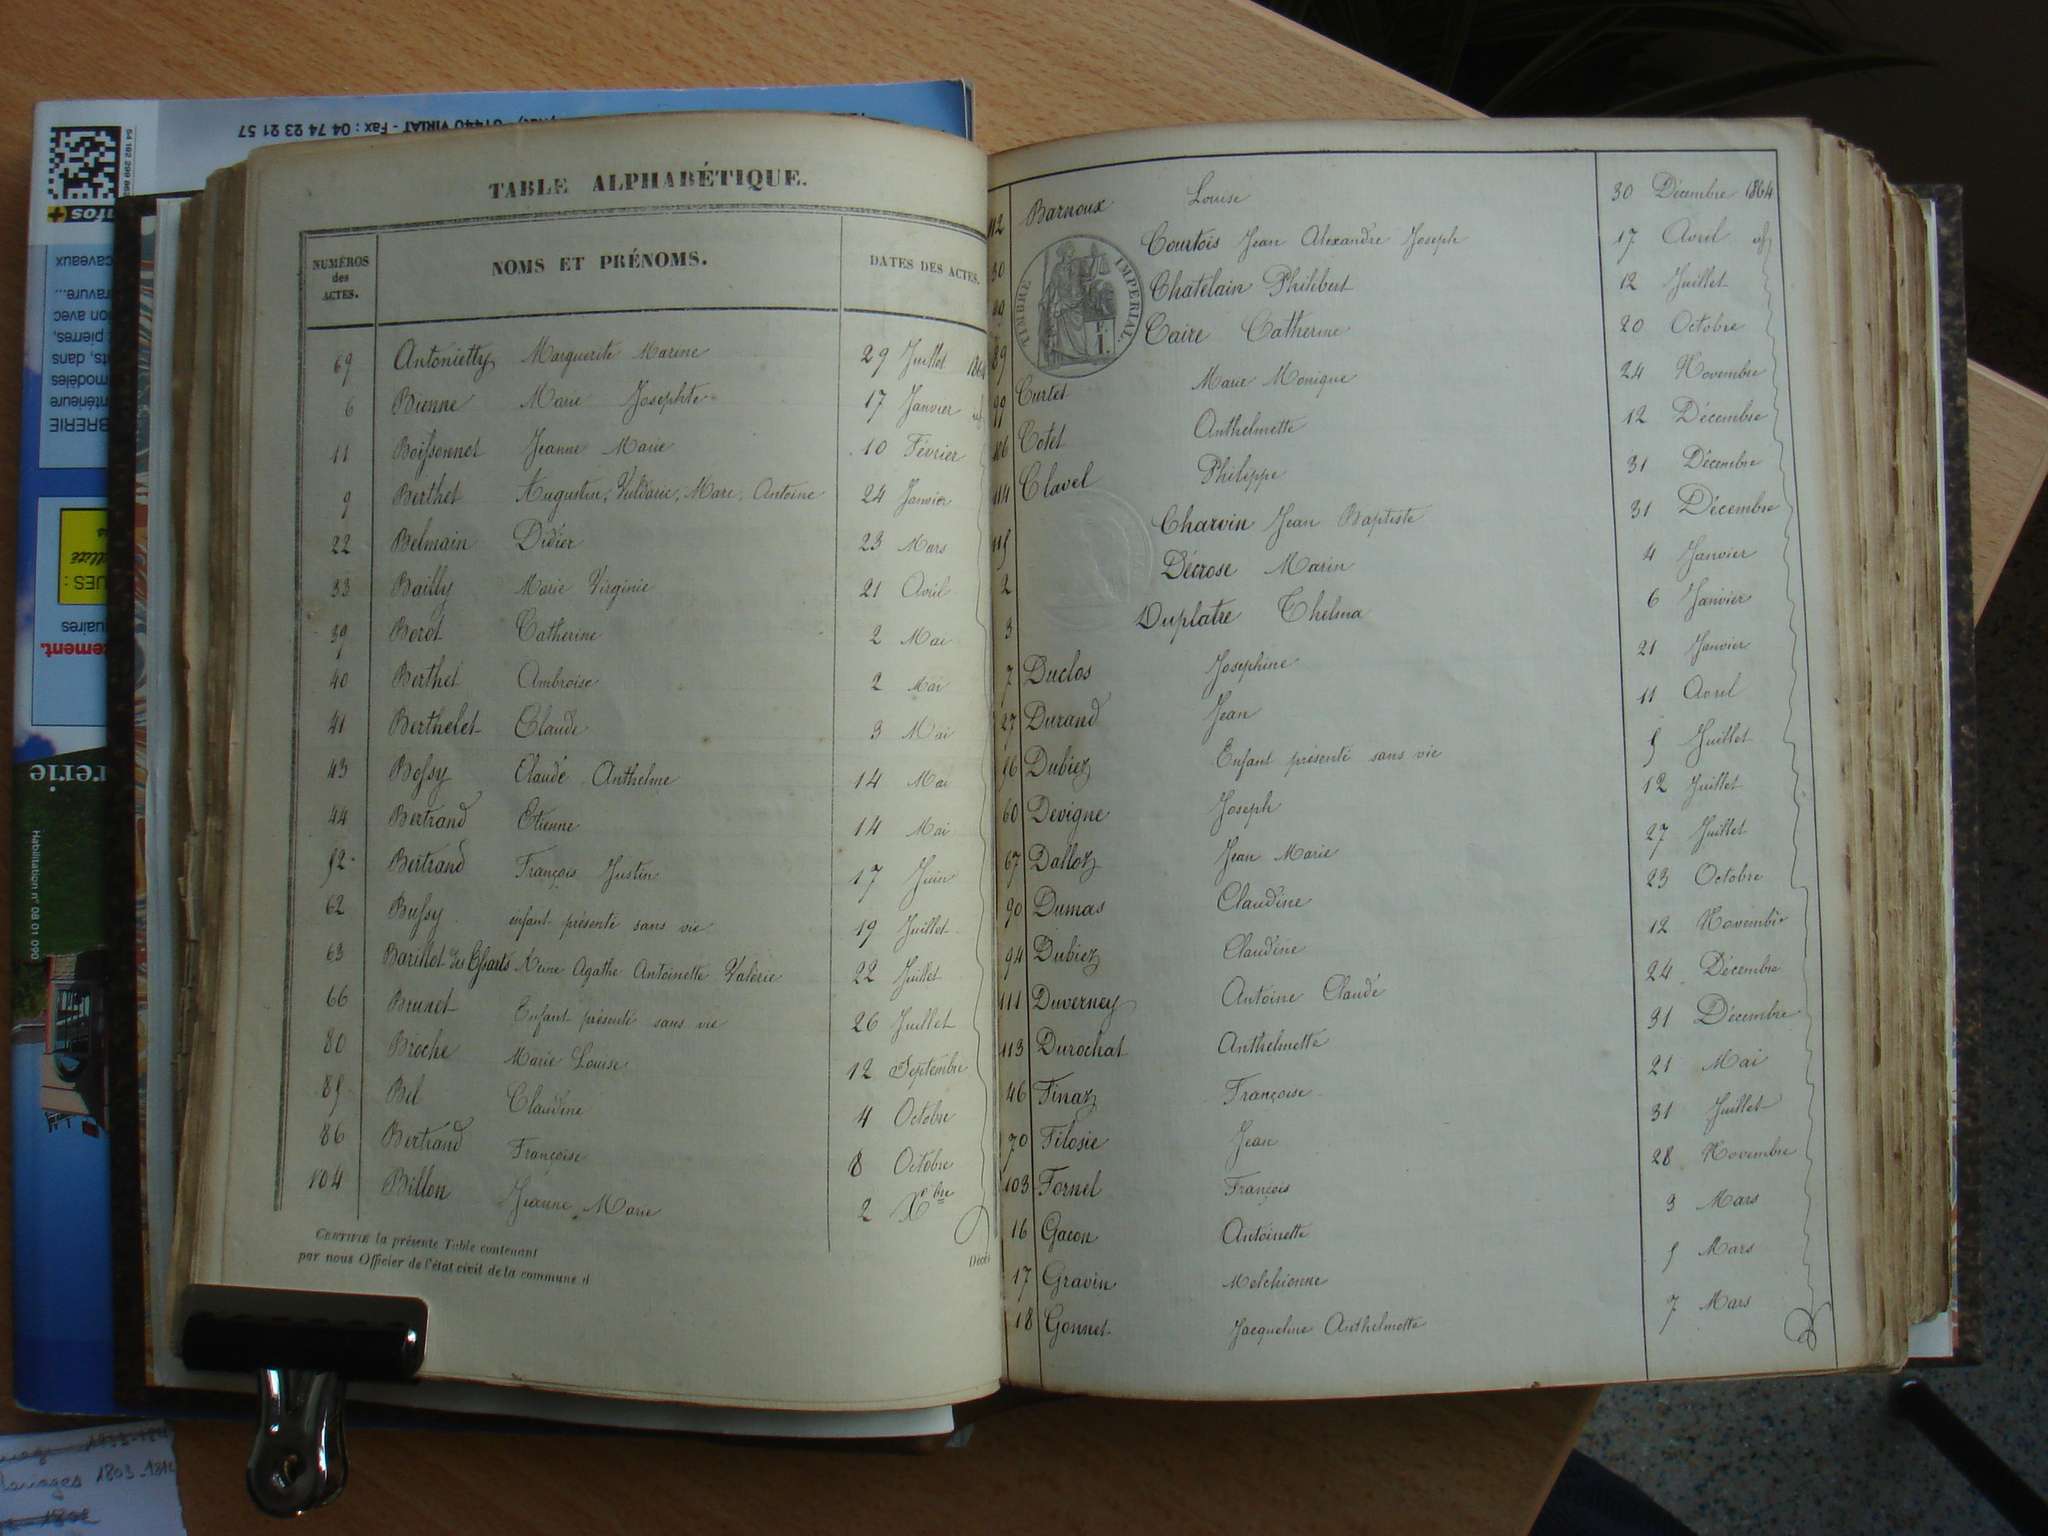 TABLE ALPHABÉTIQUE.
NUMÉROS des ACTES. NOMS ET PRÉNOMS. DATES DES ACTES.
69 Antonietty Marguerite Marine 29 Juillet 1864
6 Bienne Marie Josephte 17 Janvier id
11 Boissonnet Jeanne Marie 10 Février
9 Berthet Augustin, Marc, Antoine 24 Janvier
22 Belmain Didier 23 Mars
33 Bailly Marie Virginie 21 Avril
39 Beret Catherine 2 Mai
40 Berthet Ambroise 2 Mai
41 Berthelet Claude 3 Mai
43 Bossy Claude Anthelme 14 Mai
44 Bertrand Etienne 14 Mai
52 Bertrand François Justin 17 Juin
62 Bussy enfant présenté sans vie 19 Juillet
63 Barillot des Essarts Reine Agathe Antoinette Valérie 22 Juillet
66 Brunet Enfant présenté sans vie 26 Juillet
80 Broche Marie Louise 12 Septembre
85 Bel Claudine 4 Octobre
86 Bertrand Françoise 8 Octobre
104 Billon Jeanne Marie 2 Xbre
CERTIFIE la présente Table contenant
par nous Officier de l'état civil de la commune d
Décès
112 Barnoux Louise 30 Décembre 1864
30 Courtois Jean Alexandre Joseph 17 Avril id
Chatelain Philibert 12 Juillet
89 Caire Catherine 20 Octobre
TIMBRE IMPERIAL.
F. 1.
99 Curtet Marie Monique 24 Novembre
106 Cotet Anthelmette 12 Décembre
114 Clavel Philippe 31 Décembre
115 Charvin Jean Baptiste 31 Décembre
2 Décrose Marin 4 Janvier
3 Duplatre Thelma 6 Janvier
7 Duclos Josephine 21 Janvier
27 Durand Jean 11 Avril
56 Dubiez Enfant présenté sans vie 5 Juillet
60 Devigne Joseph 12 Juillet
67 Dalloz Jean Marie 27 Juillet
90 Dumas Claudine 23 Octobre
94 Dubiez Claudine 12 Novembre
111 Duverney Antoine Claude 24 Décembre
113 Durochat Anthelmette 31 Décembre
46 Finaz Françoise 21 Mai
70 Filosie Jean 31 Juillet
103 Fornet François 28 Novembre
16 Gacon Antoinette 3 Mars
17 Gravin Melchionne 5 Mars
18 Gonnet Jacqueline Anthelmette 7 Mars
01440 VIRIAT - Fax : 04 74 23 21 57
caveaux
modèles
pierres,
Habilitation n° 08 01 090
1803-1812